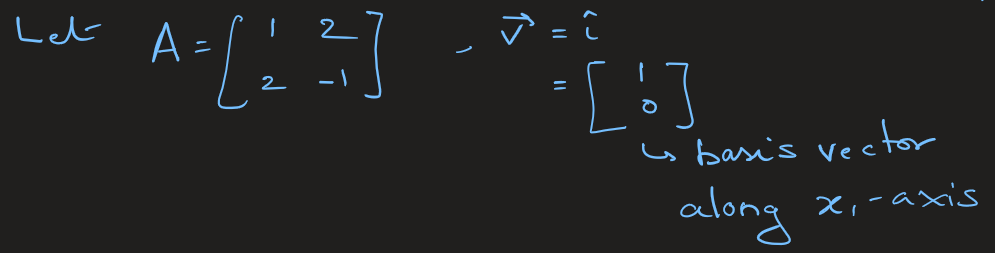 Let A = [ 1 2 ; 2 -1 ] , v⃗ = î
= [ 1 ; 0 ]
↳ basis vector
along x₁-axis